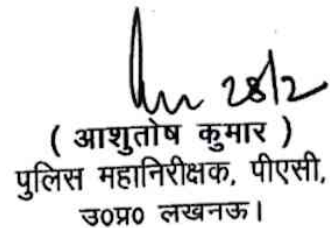 28/2
( आशुतोष कुमार )
पुलिस महानिरीक्षक, पीएसी,
उ०प्र० लखनऊ।